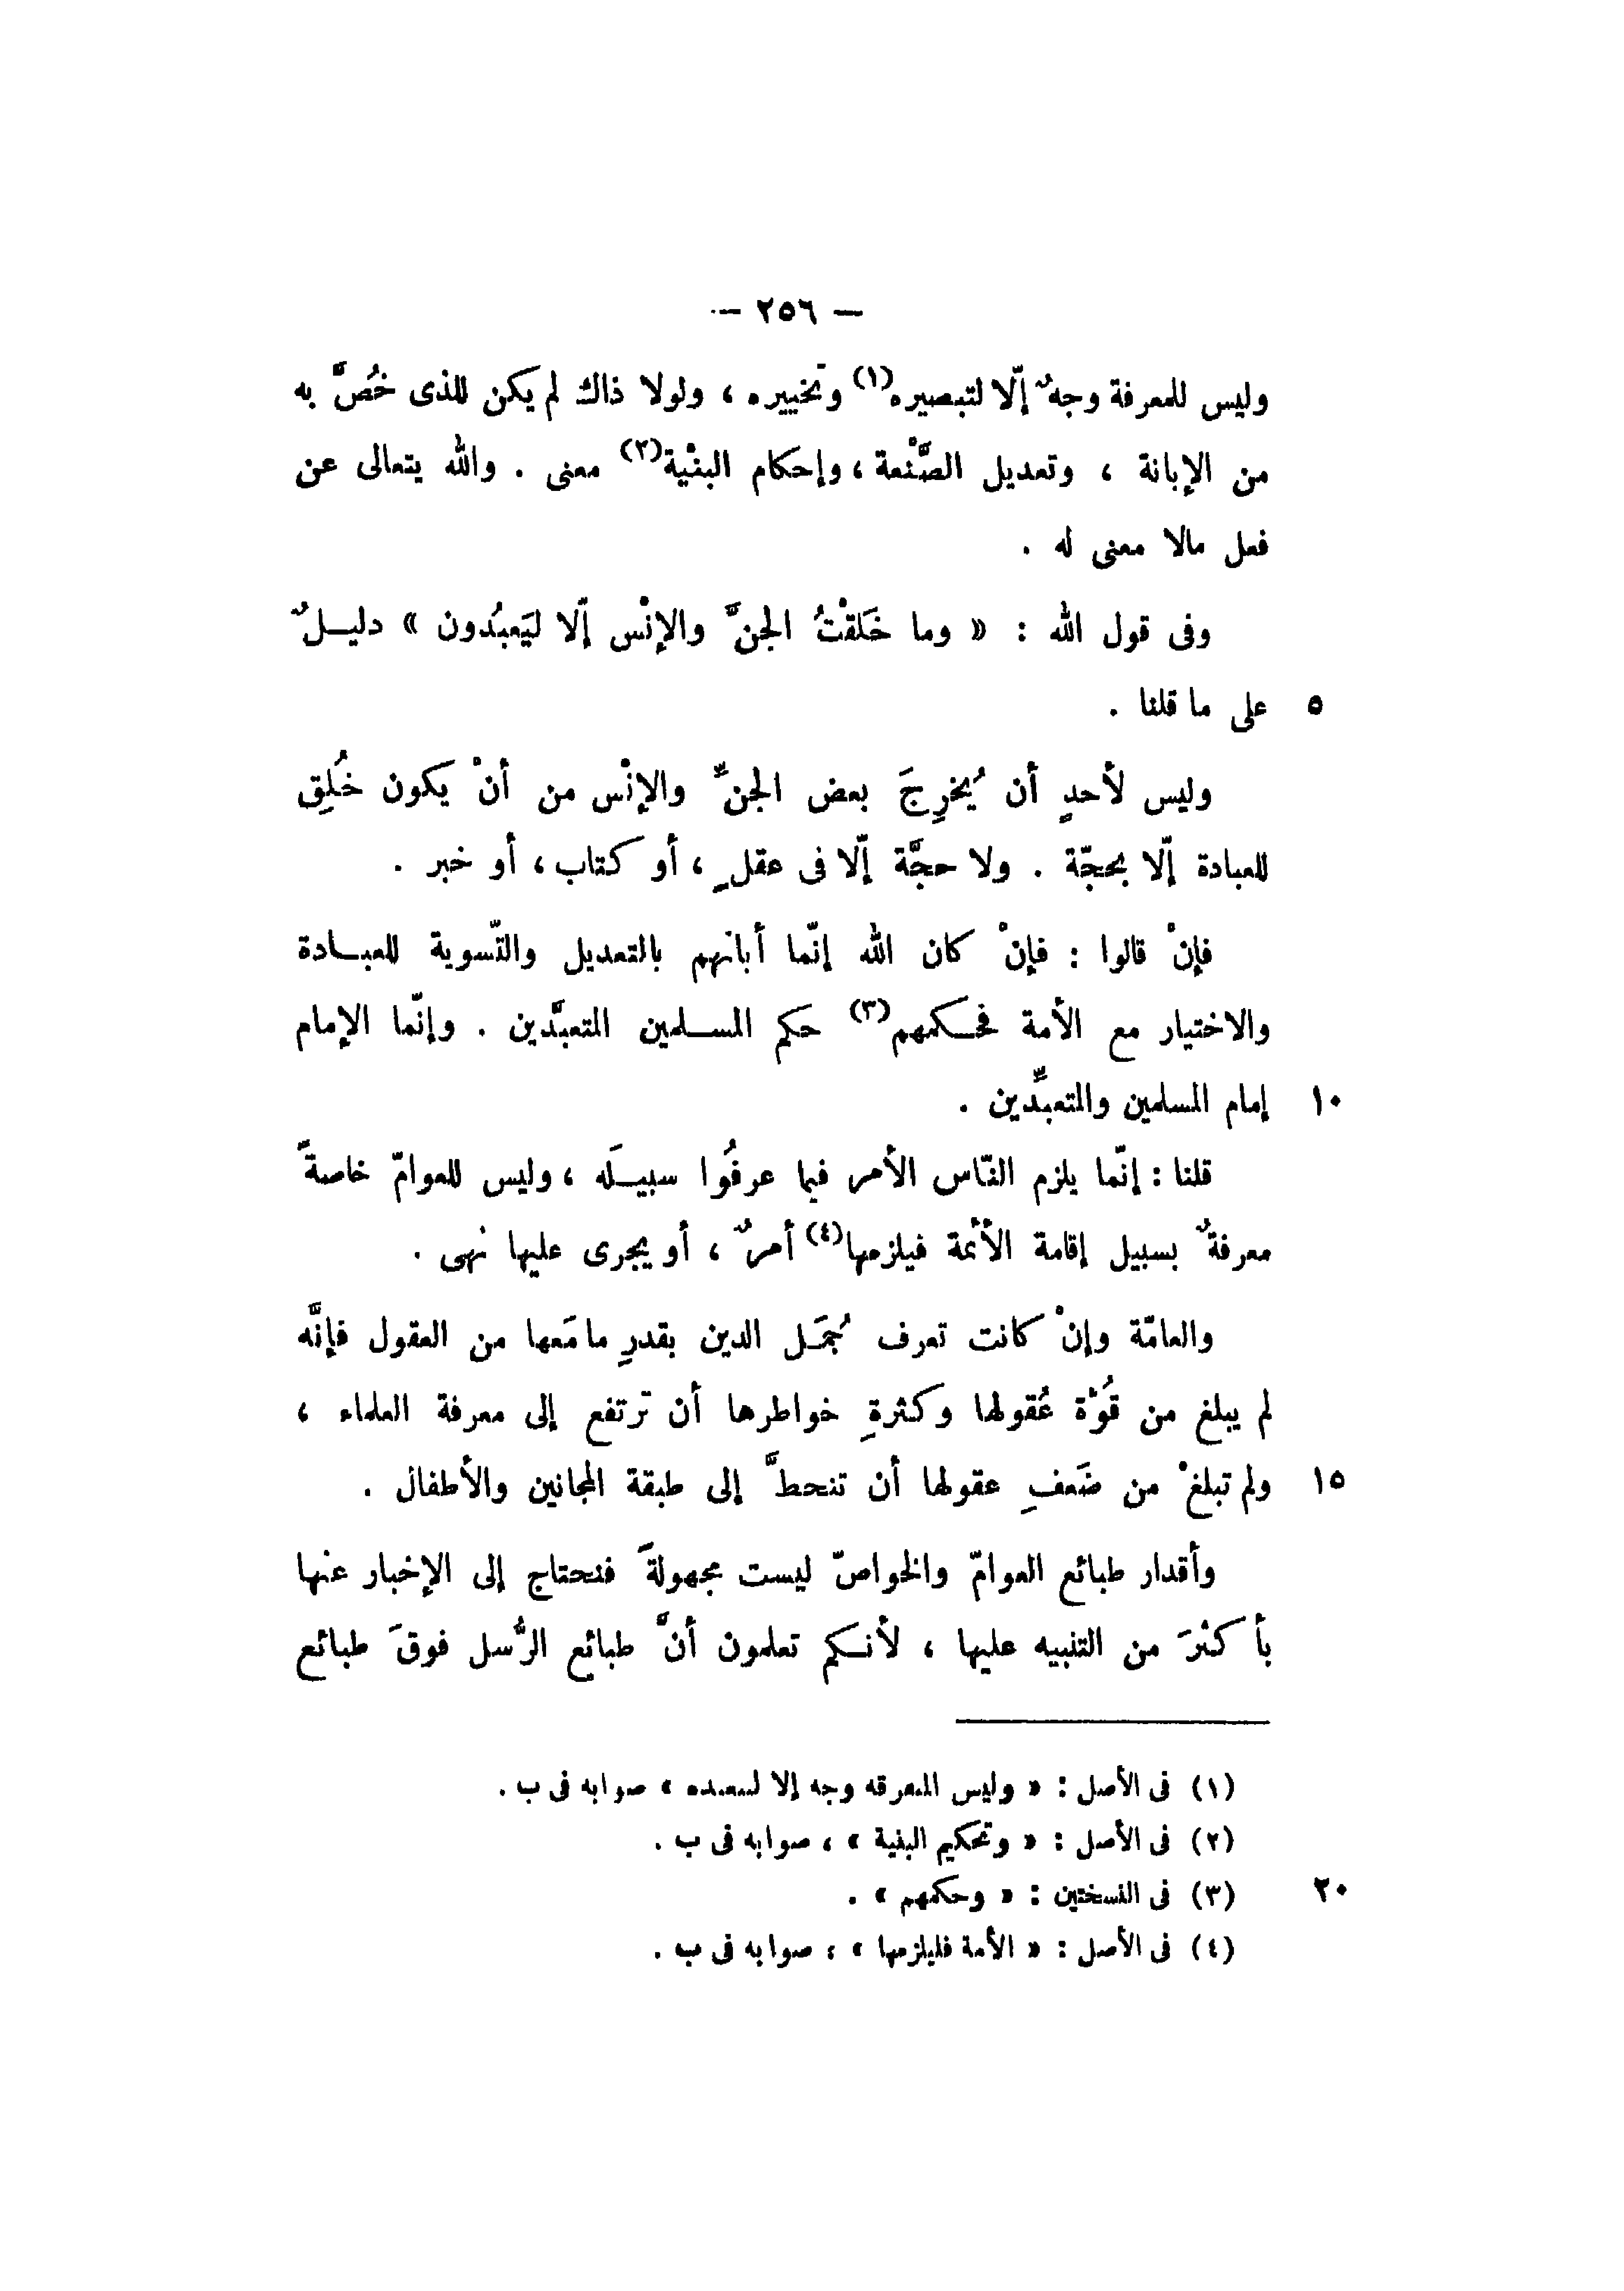 — ٢٥٦ —
وليس للمعرفة وجهٌ إلّا لتبصيره(١) وتخييره ، ولولا ذاك لم يكن للذى خُصَّ به
من الإبانة ، وتعديل الصَّنْعة ، وإحكام البنْية(٢) معنى . والله يتعالى عن
فعل مالا معنى له .
وفى قول الله : « وما خَلَقْتُ الجنَّ والإنْس إلّا ليَعبُدون » دليـلٌ
٥ على ما قلنا .
وليس لأحدٍ أن يُخرِجَ بعض الجنِّ والإنْس من أنْ يكون خُلِق
للعبادة إلّا بحجّة . ولا حجَّة إلّا فى عقلٍ ، أو كتاب ، أو خبر .
فإنْ قالوا : فإنْ كان الله إنّما أبانهم بالتعديل والتّسوية للعبـادة
والاختيار مع الأمة فحـكمهم(٣) حكم المسـلمين المتعبَّدين . وإنّما الإمام
١٠ إمام المسلمين والمتعبِّدين .
قلنا : إنّما يلزم النّاس الأمر فيما عرفُوا سبيـلَه ، وليس للعوامّ خاصةً
معرفةٌ بسبيل إقامة الأئمة فيلزمها(٤) أمرٌ ، أو يجرى عليها نهى .
والعامّة وإنْ كانت تعرف جُمَـل الدين بقدرِ ما مَعها من العقول فإنَّه
لم يبلغ من قُوّة عُقولها وكثرةِ خواطرها أن ترتفع إلى معرفة العلماء ،
١٥ ولم تبلغْ من ضَعفِ عقولها أن تنحطَّ إلى طبقة المجانين والأطفال .
وأقدار طبائع العوامّ والخواصّ ليست مجهولةً فنحتاج إلى الإخبار عنها
بأكثرَ من التنبيه عليها ، لأنـكم تعلمون أنَّ طبائع الرُّسل فوقَ طبائع
(١) فى الأصل : « وليس المعرقه وجه إلا لسعىده » صوابه فى ب .
(٢) فى الأصل : « وتحكيم البنية » ، صوابه فى ب .
٢٠ (٣) فى النسختين : « وحكمهم » .
(٤) فى الأصل : « الأمة فليلزمها » ، صوابه فى ب .